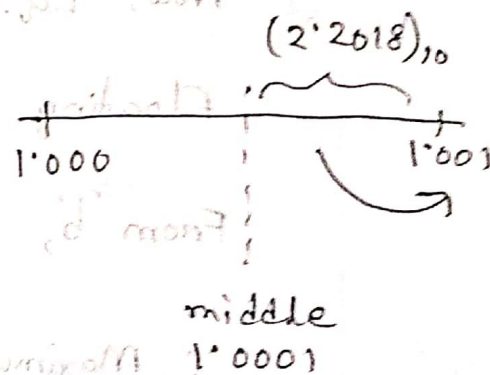 (2·2018)₁₀
1·000 1·001
middle
1·0001